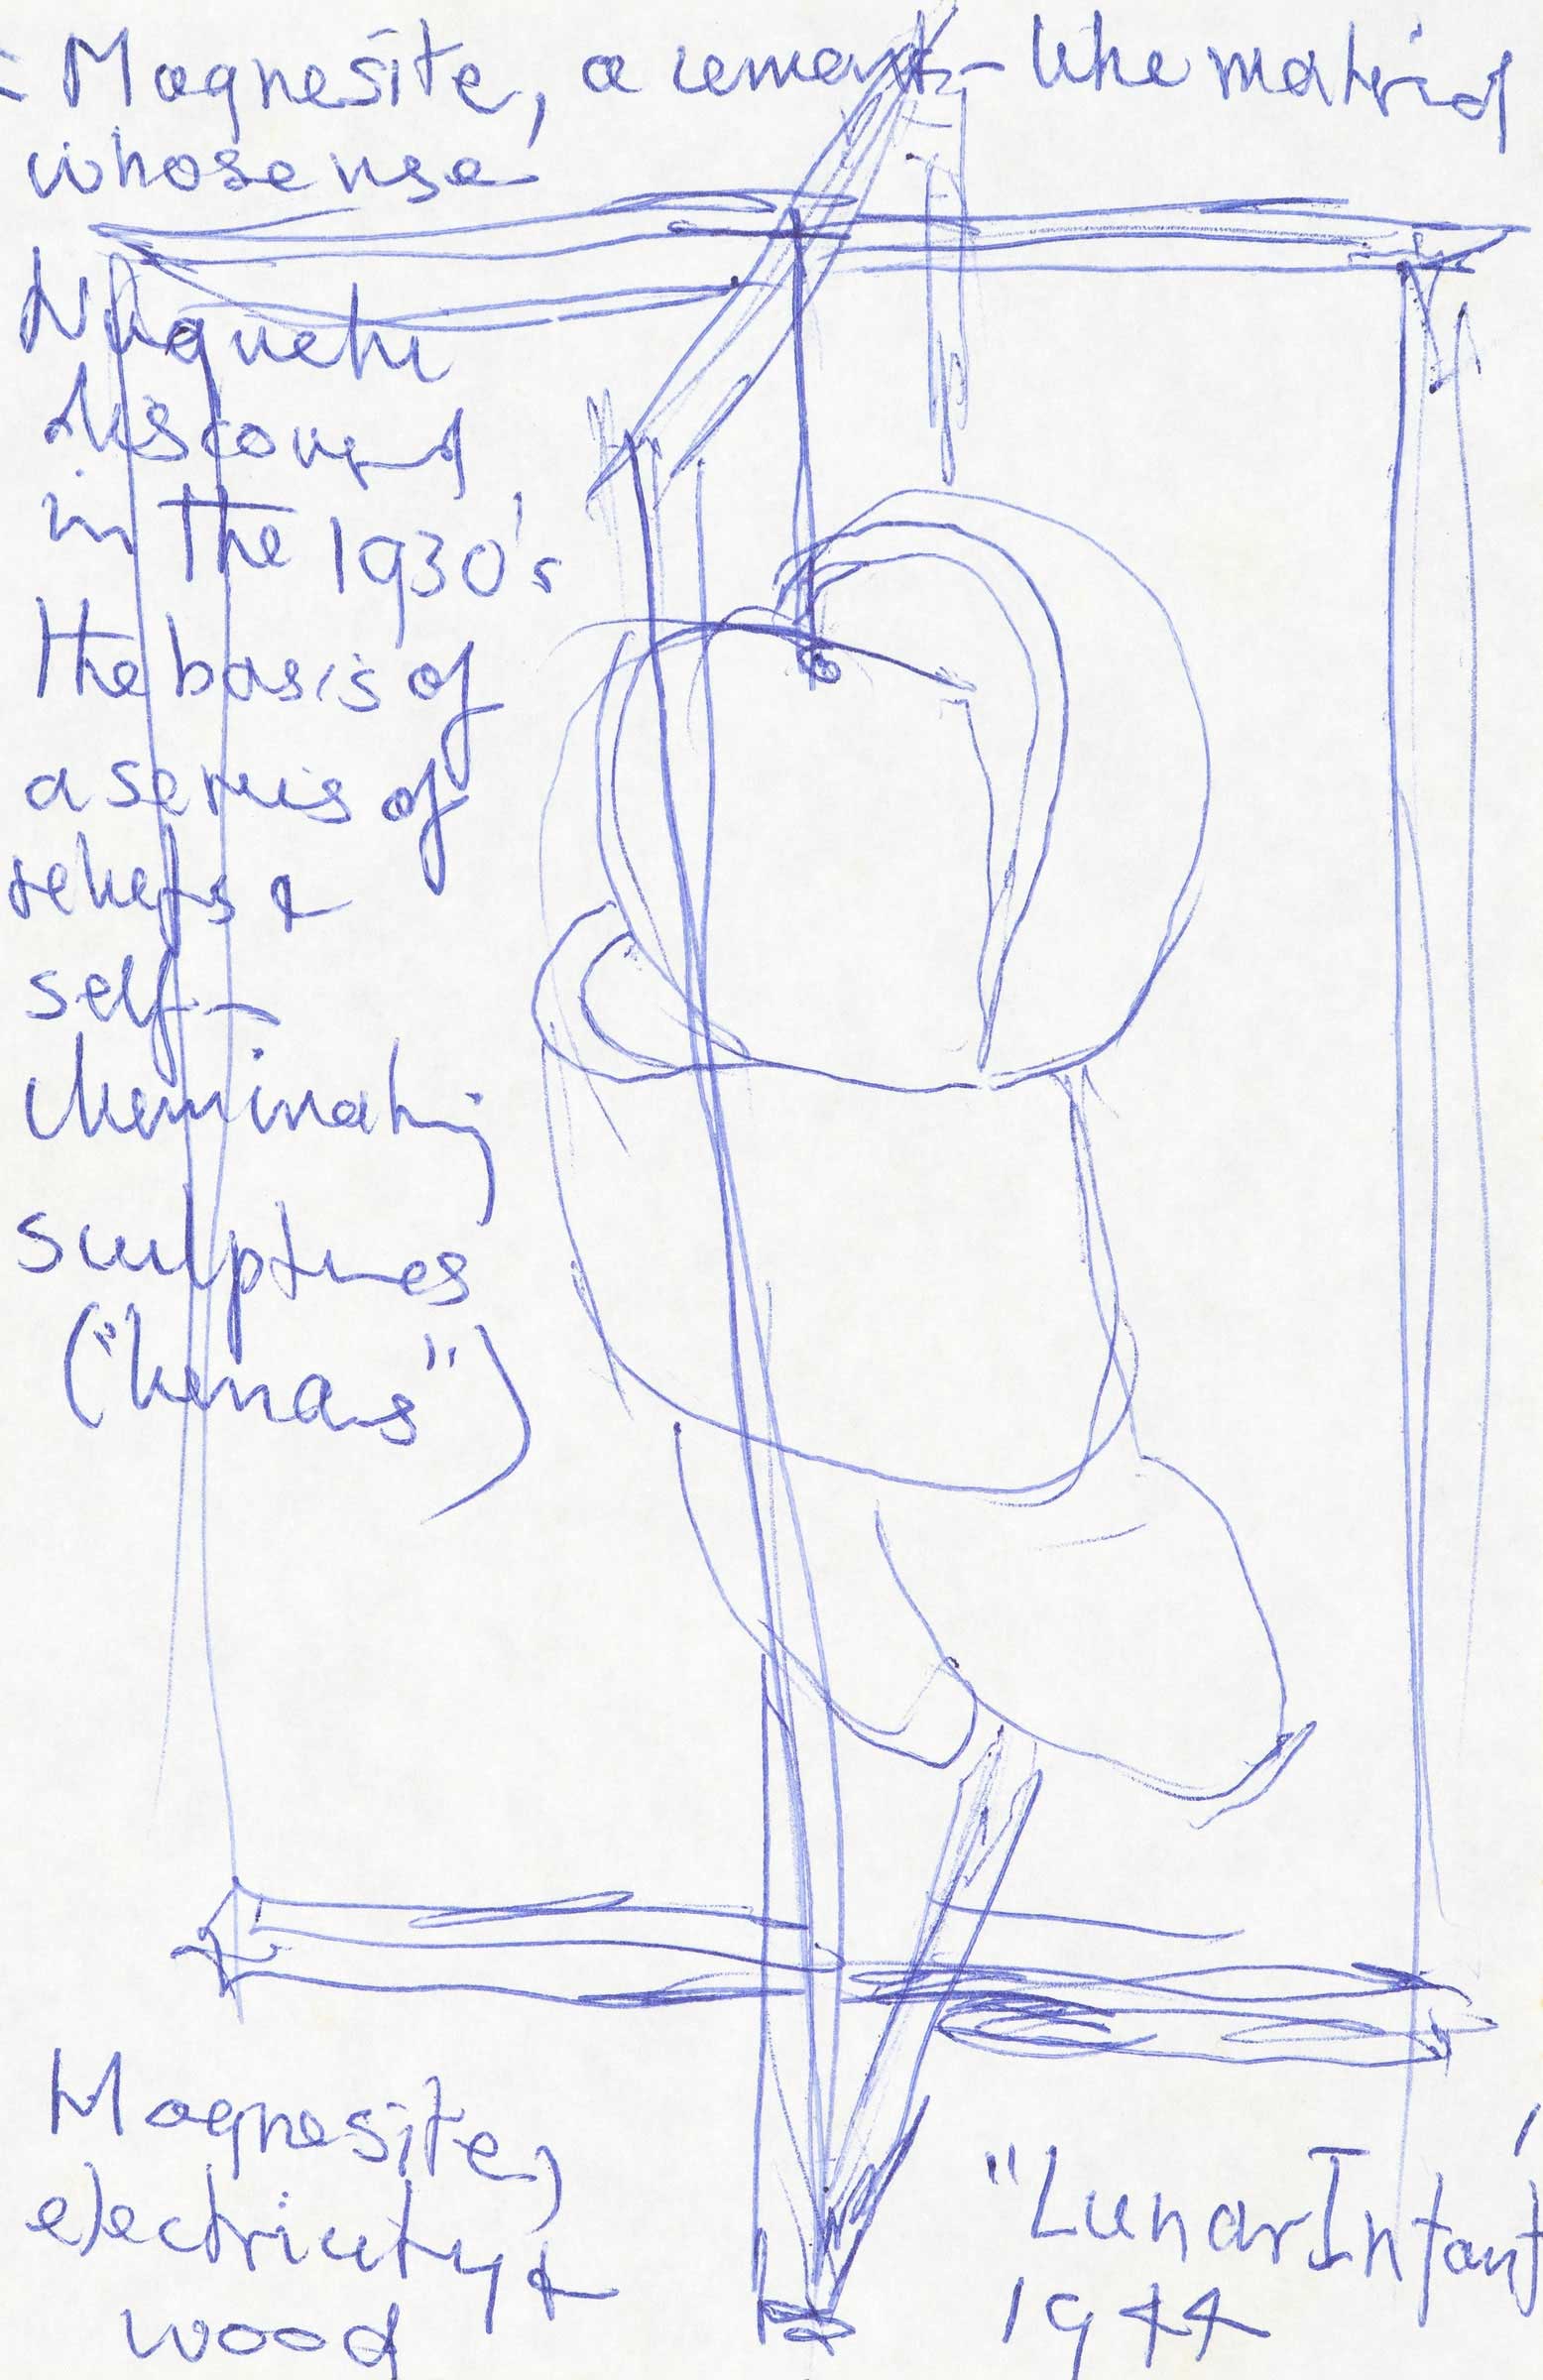 = Magnesite, a cement-like material
whose use
Noguchi
discovered
in the 1930's
the basis of
a series of
reliefs &
self-
illuminating
sculptures
("lunars")
Magnesite,
electricity &
wood
"Lunar Infant"
1944